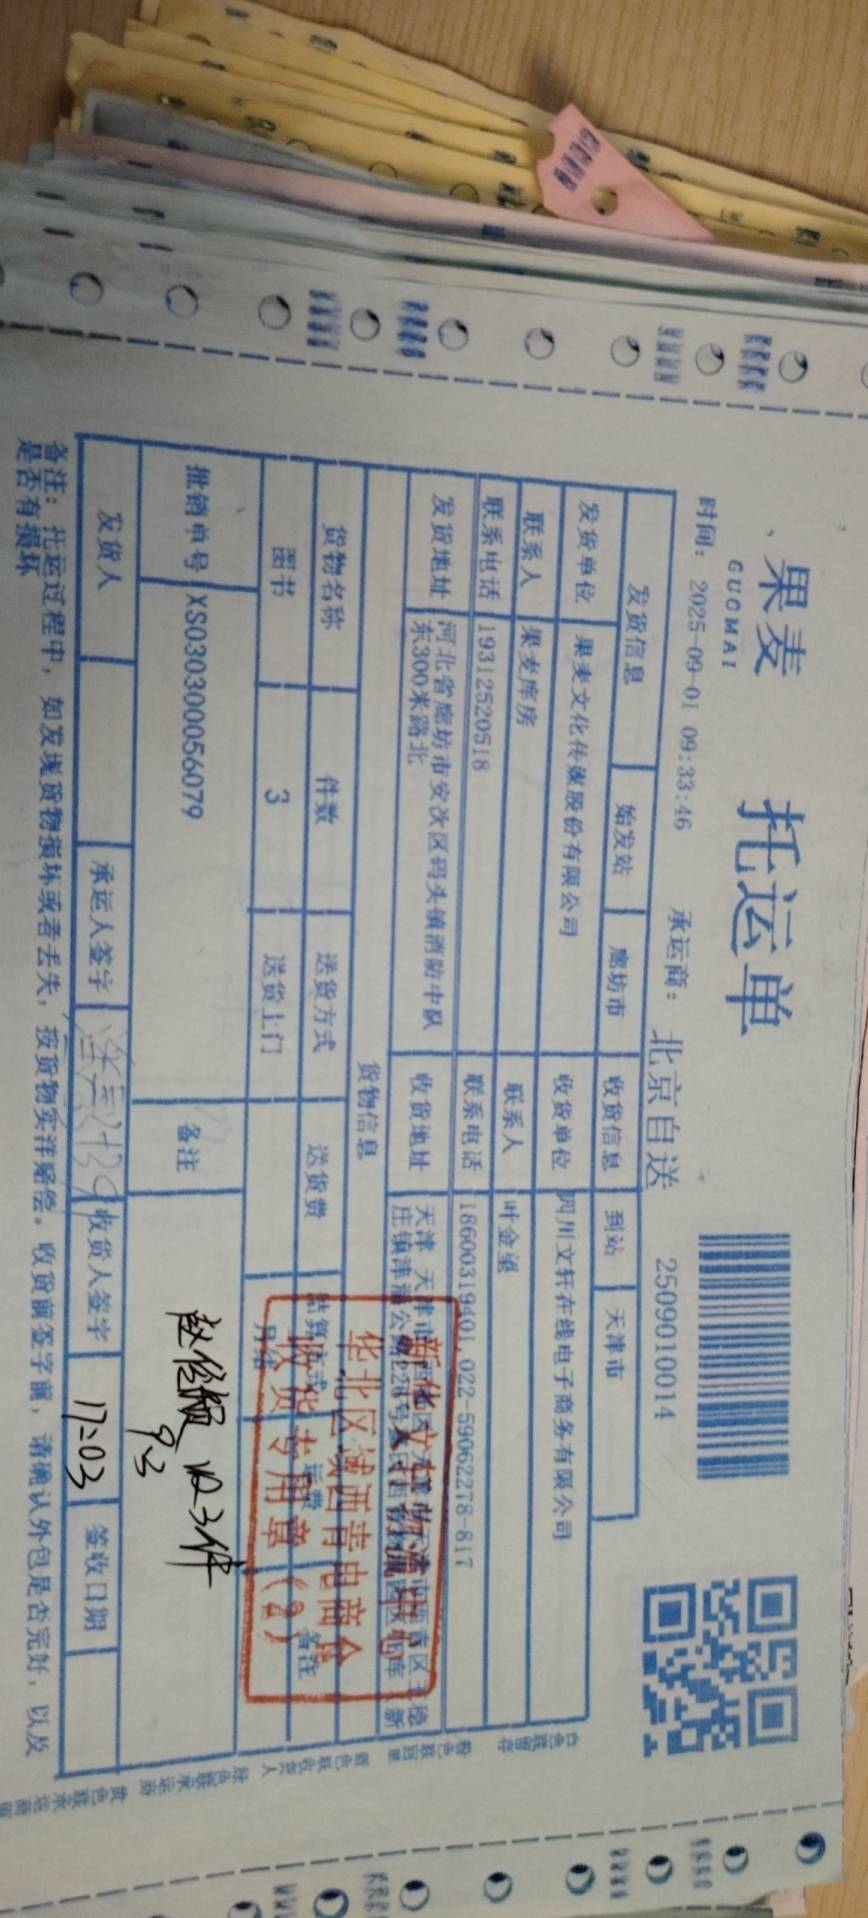 果麦
GUOMAI
托运单
2509010014
时间: 2025-09-01 09:33:46 承运商: 北京自送
发货信息 始发站 廊坊市 收货信息 到站 天津市
发货单位 果麦文化传媒股份有限公司 收货单位 四川文轩在线电子商务有限公司
联系人 果麦库房 联系人 叶金望
联系电话 19312520518 联系电话 18600319401,022-59062278-817
发货地址 河北省廊坊市安次区码头镇消防中队东300米路北 收货地址 天津 天津市
货物信息
货物名称 件数 送货方式 送货费 结算方式 运费 备注
图书 3 送货上门 月结
批销单号 XS0303000056079 备注
赵俊 收3件
9.3
发货人 承运人签字 收货人签字 17:03 签收日期
备注: 托运过程中, 如发现货物损坏或者丢失, 按货物实洋赔偿。收货前签字前, 请确认外包是否完好, 以及
是否有损坏
华北区域西青电商仓
收货专用章(2)
白色联留存
粉色联回单
蓝色联收货人
绿色联承运商
黄色联承运商